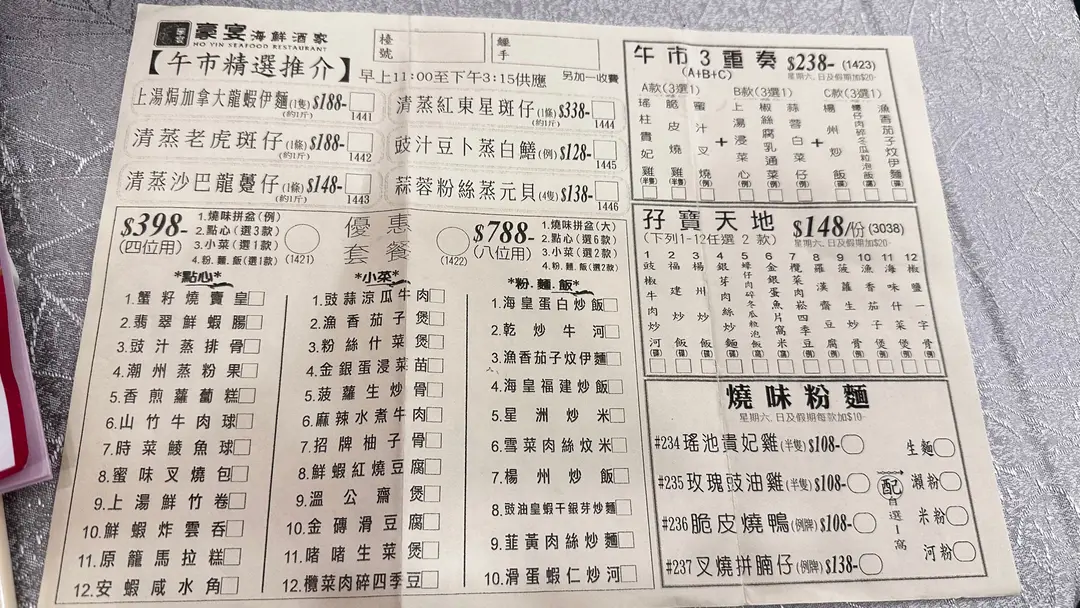 豪宴海鮮酒家
HO YIN SEAFOOD RESTAURANT
檯號
經手
【午市精選推介】
早上11:00至下午3:15供應
另加一收費
上湯焗加拿大龍蝦伊麵(1隻)$188-
(約1斤)
1441
清蒸紅東星斑仔(1條)$338-
(約1斤)
1444
清蒸老虎斑仔(1條)$188-
(約1斤)
1442
豉汁豆卜蒸白鱔(例)$128-
1445
清蒸沙巴龍躉仔(1條)$148-
(約1斤)
1443
蒜蓉粉絲蒸元貝(4隻)$138-
1446
$398-
(四位用)
1.燒味拼盆(例)
2.點心(選3款)
3.小菜(選1款)
4.粉.麵.飯(選1款)
(1421)
優惠套餐
(1422)
$788-
(八位用)
1.燒味拼盆(大)
2.點心(選6款)
3.小菜(選2款)
4.粉.麵.飯(選2款)
*點心*
1.蟹籽燒賣皇
2.翡翠鮮蝦腸
3.豉汁蒸排骨
4.潮州蒸粉果
5.香煎蘿蔔糕
6.山竹牛肉球
7.時菜鯪魚球
8.蜜味叉燒包
9.上湯鮮竹卷
10.鮮蝦炸雲吞
11.原籠馬拉糕
12.安蝦咸水角
*小菜*
1.豉蒜涼瓜牛肉
2.漁香茄子煲
3.粉絲什菜煲
4.金銀蛋浸菜苗
5.菠蘿生炒骨
6.麻辣水煮牛肉
7.招牌柚子骨
8.鮮蝦紅燒豆腐
9.溫公齋煲
10.金磚滑豆腐
11.啫啫生菜煲
12.欖菜肉碎四季豆
*粉.麵.飯*
1.海皇蛋白炒飯
2.乾炒牛河
3.漁香茄子炆伊麵
4.海皇福建炒飯
5.星洲炒米
6.雪菜肉絲炆米
7.楊州炒飯
8.豉油皇蝦干銀芽炒麵
9.韮黃肉絲炒麵
10.滑蛋蝦仁炒河
午市3重奏
(A+B+C)
$238-(1423)
星期六.日及假期加$20-
A款(3選1)
B款(3選1)
C款(3選1)
瑤柱貴妃雞(半隻)
脆皮燒雞(半隻)
蜜汁叉燒(例)
+
上湯浸菜心(例)
椒絲腐乳通菜(例)
蒜蓉白菜仔(例)
+
楊州炒飯(碟)
蝦仔肉碎冬瓜粒泡飯(碟)
漁香茄子炆伊麵(碟)
孖寶天地
(下列1-12任選 2 款)
$148/份(3038)
星期六.日及假期加$20-
1豉椒牛肉炒河(碟)
2福建炒飯(碟)
3楊州炒飯(碟)
4銀芽肉絲炒麵(碟)
5蝦仔肉碎冬瓜粒泡飯(窩)
6金銀蛋魚片窩米(窩)
7欖菜肉崧四季豆(例)
8羅漢齋豆腐(例)
9菠蘿生炒骨(例)
10漁香茄子煲(例)
11海味什菜煲(例)
12椒鹽一字骨(例)
燒味粉麵
星期六.日及假期每款加$10-
#234瑤池貴妃雞(半隻)$108-
#235玫瑰豉油雞(半隻)$108-
#236脆皮燒鴨(例牌)$108-
#237叉燒拼腩仔(例牌)$138-
配
自選1窩
生麵
瀨粉
米粉
河粉